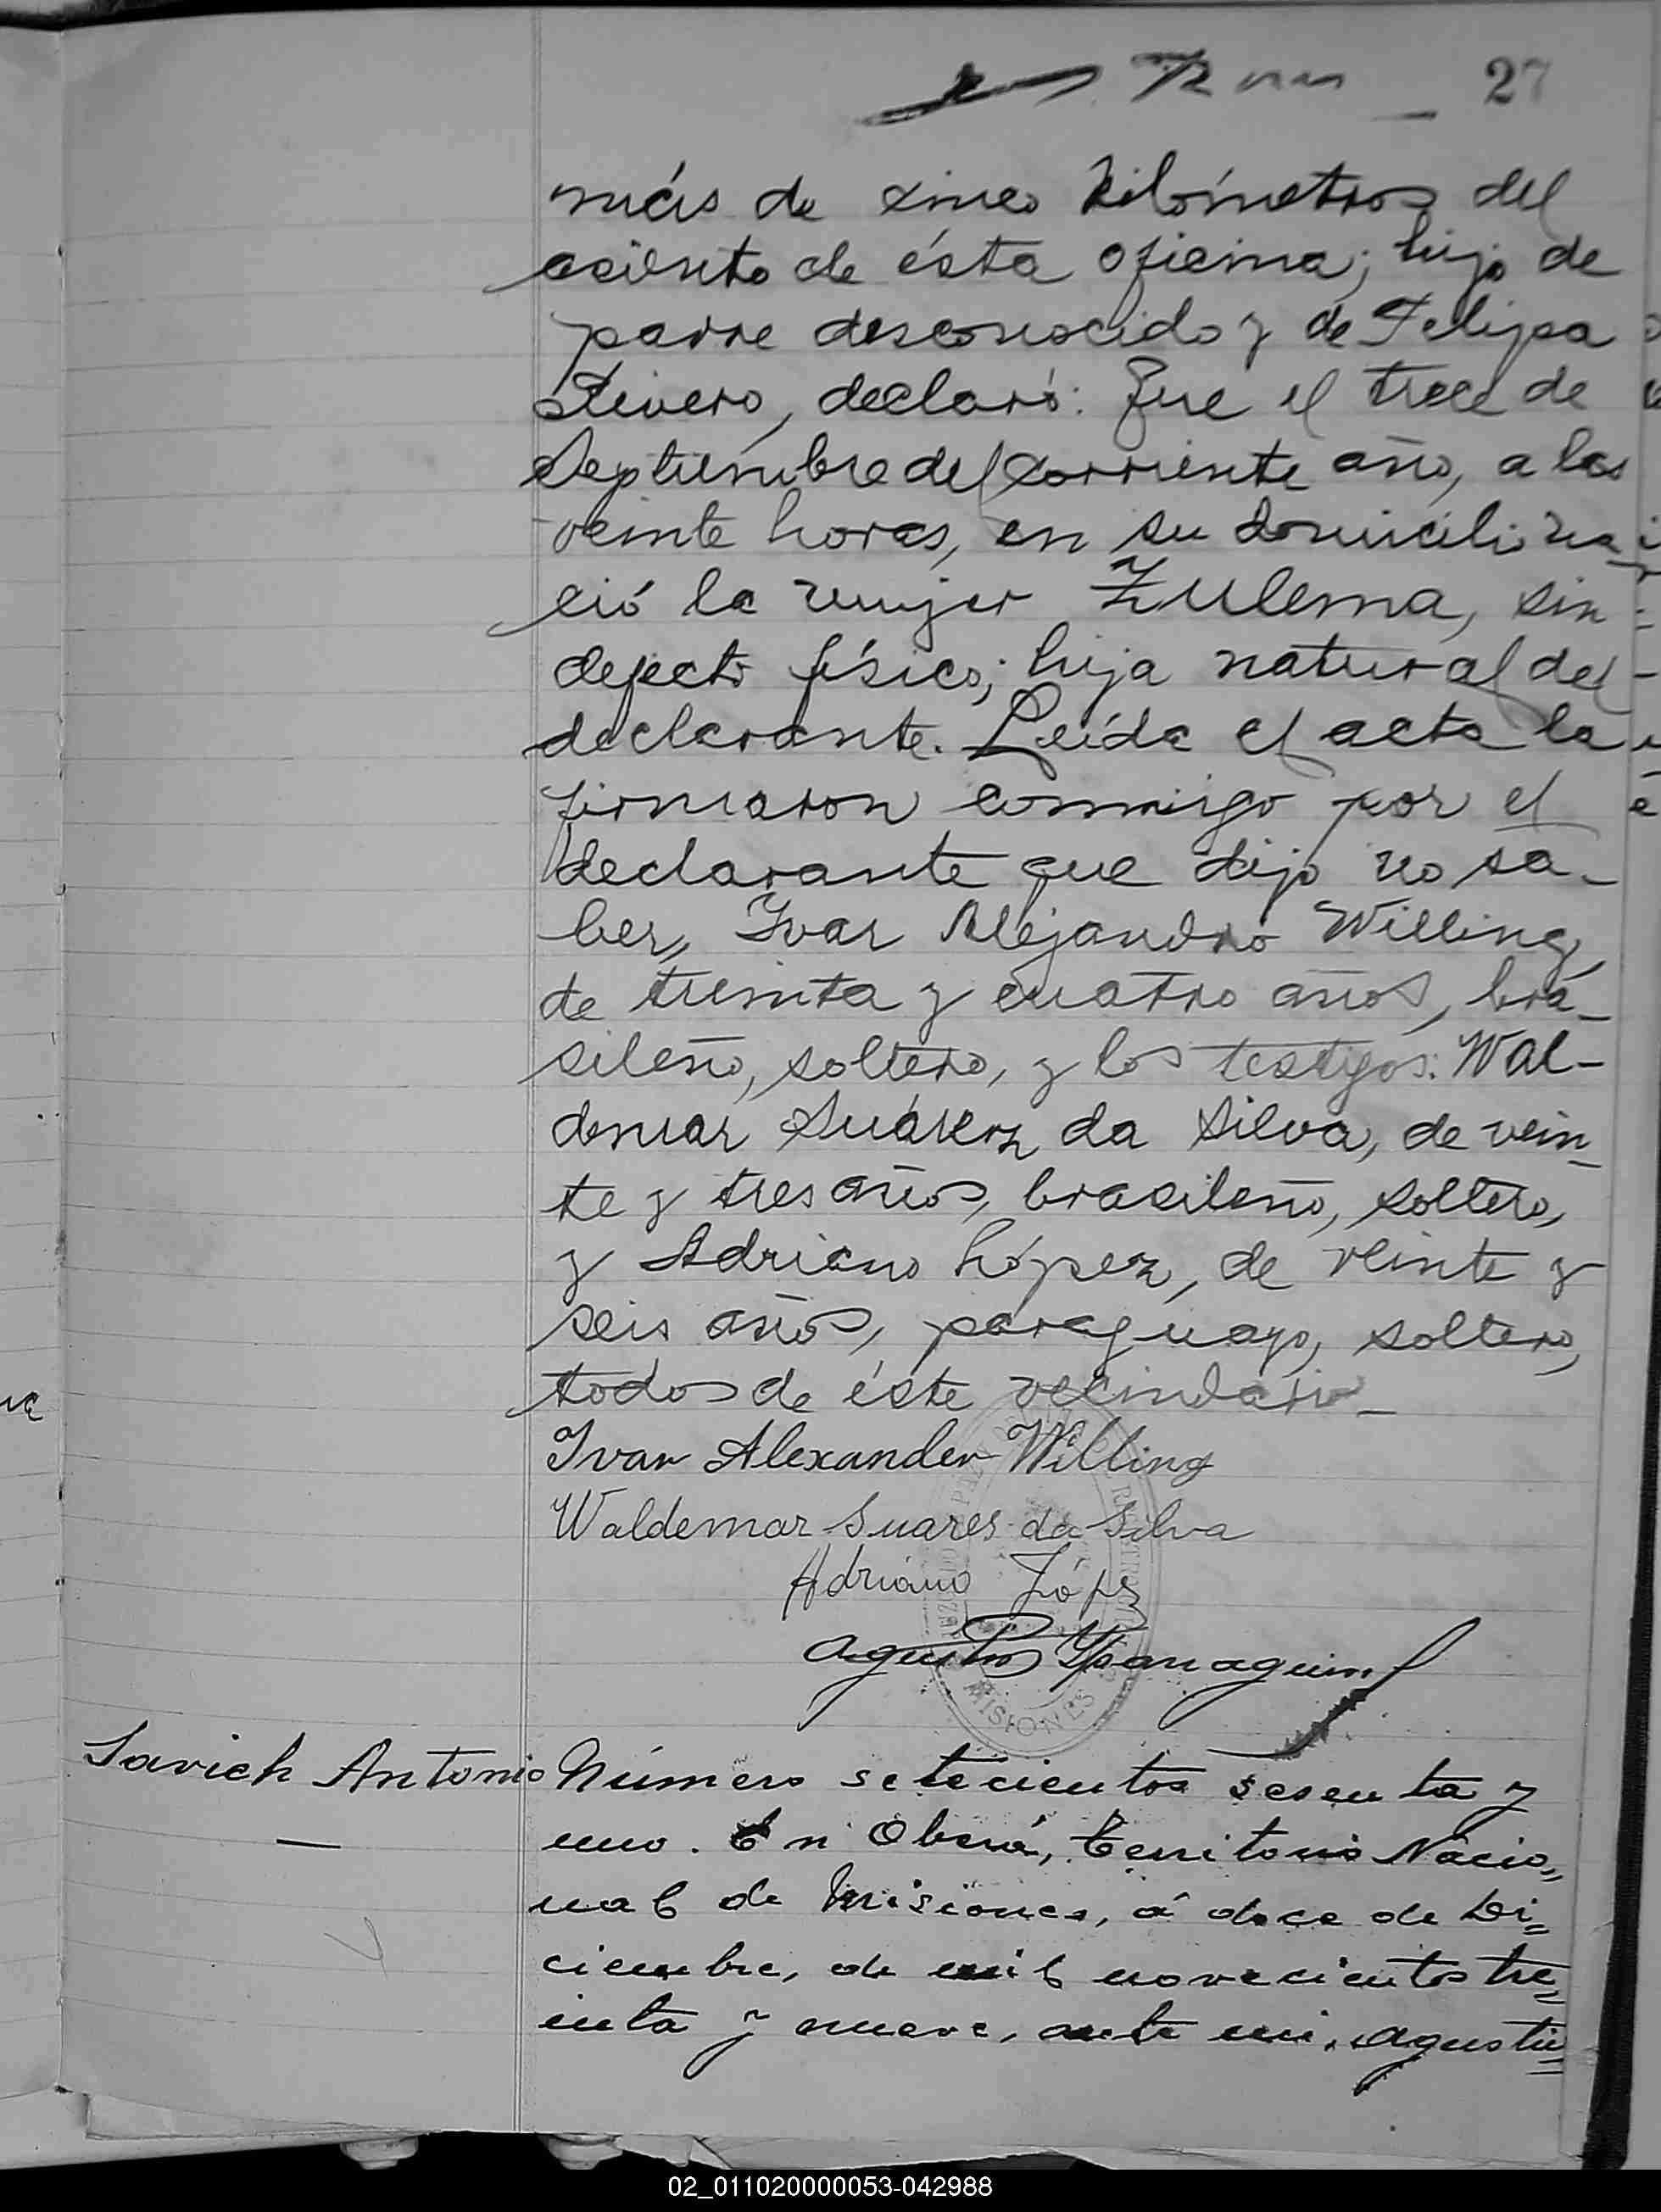 27
más de cinco kilómetros del
asiento de ésta oficina; hijo de
parre desconocido y de Felipa
Rivero, declaró: Que el trece de
Septiembre del corriente año, a las
veinte horas, en su domicilio na
ció la mujer Zulema, sin
defecto físico; hija natural del
declarante. Leída el acta la
firmaron conmigo por el
declarante que dijo no sa-
ber, Ivar Alejandro Willing,
de treinta y cuatro años, bra-
sileño, soltero, y los testigos: Wal-
demar Suárez da Silva, de vein-
te y tres años, brasileño, soltero,
y Adriano López, de veinte y
seis años, paraguayo, soltero,
todos de éste vecindario-
Ivar Alexander Willing
Waldemar Suares da Silva
Adriano López
Agustín
MISIONES
Savich Antonio Número setecientos sesenta y
uno. En Oberá, Territorio Nacio=
nal de Misiones, á doce de Di=
ciembre, de mil novecientos tre=
inta y nueve, ante mi, Agustín=
02_011020000053-042988